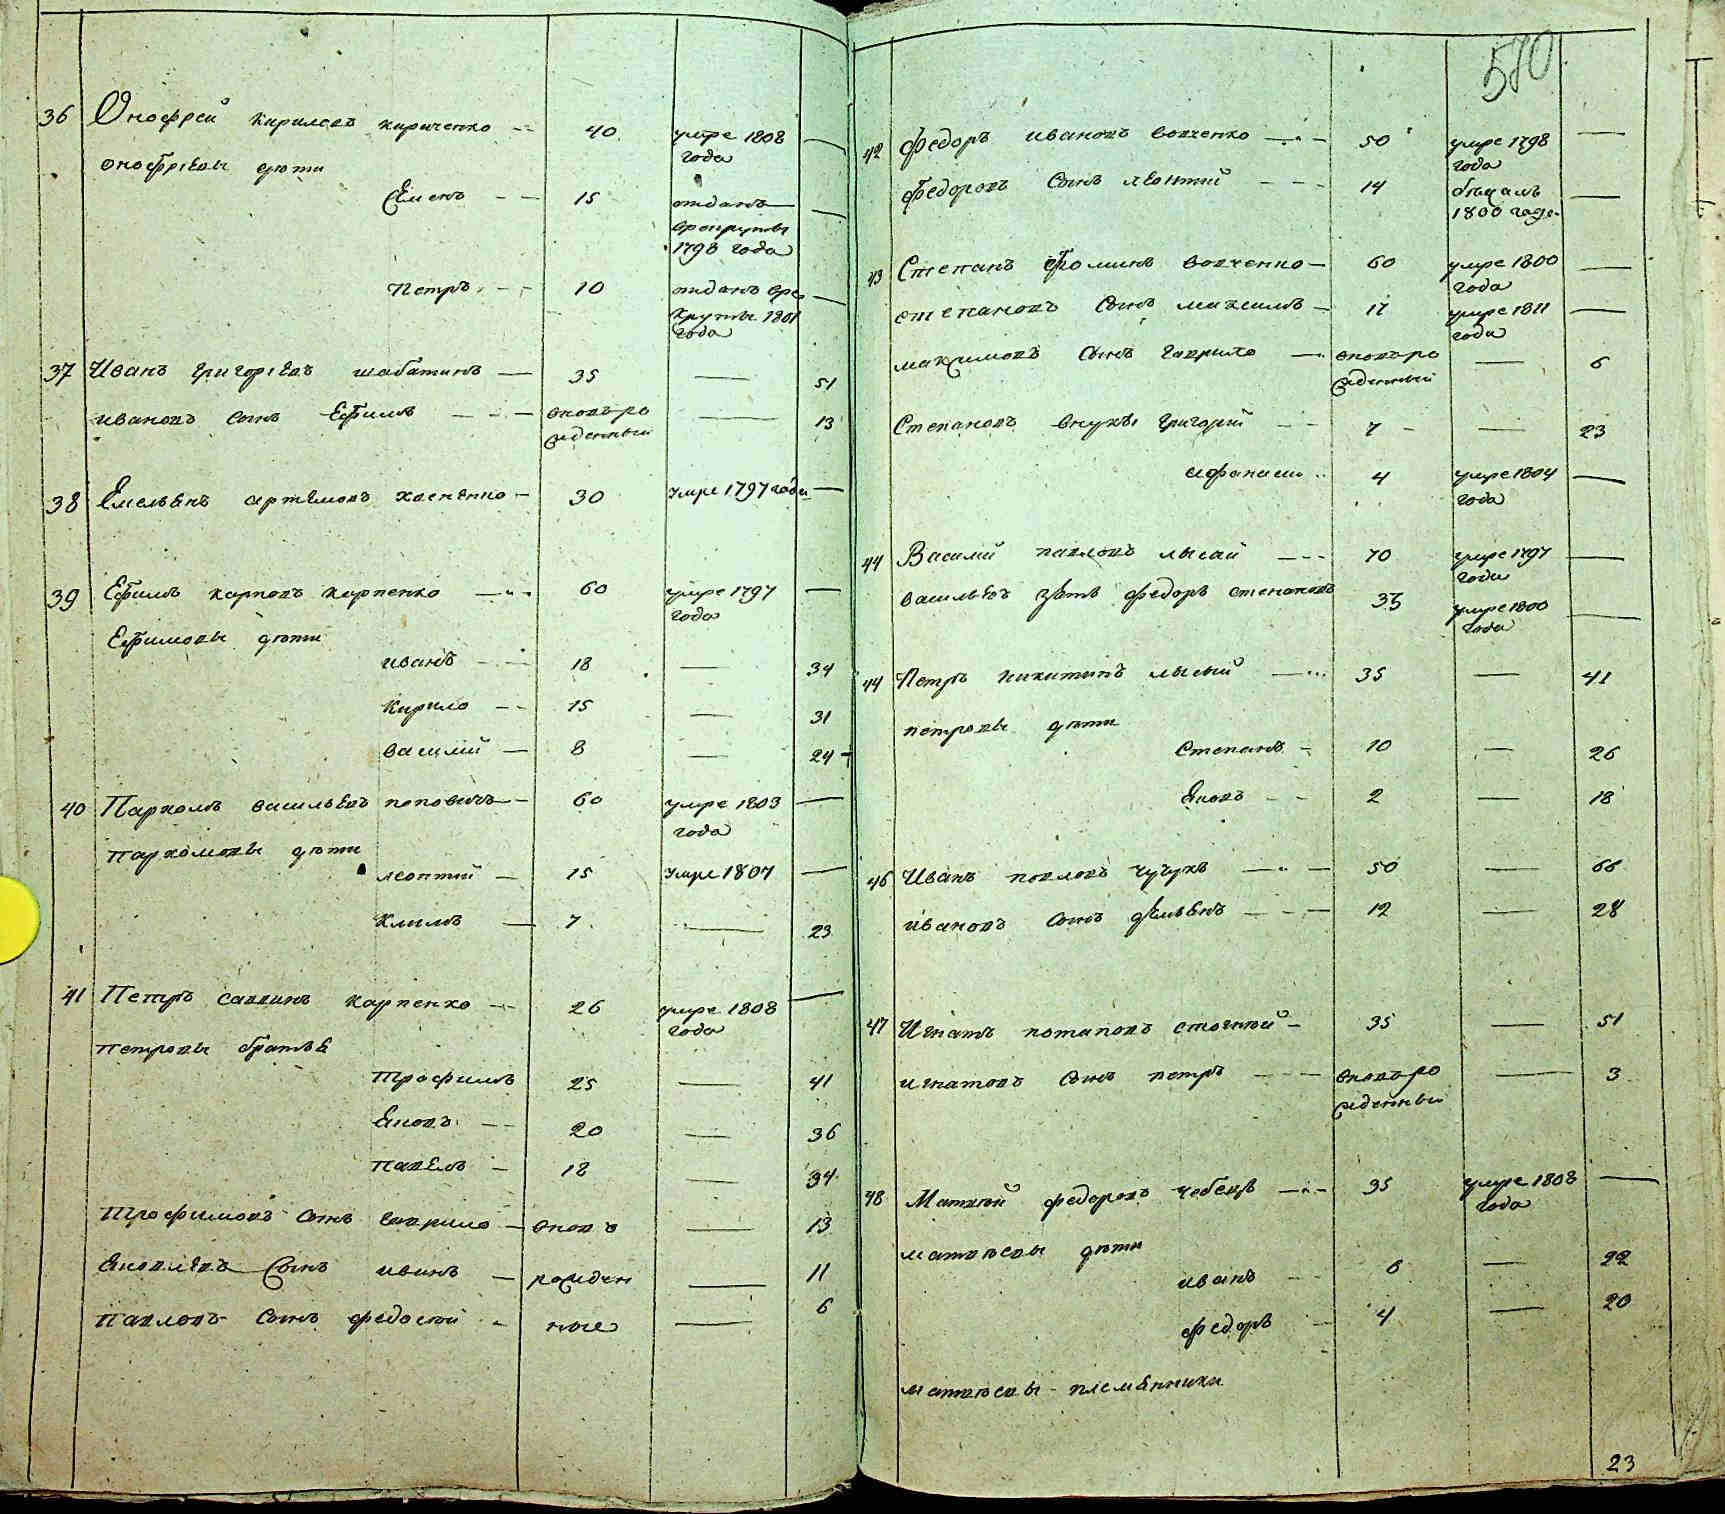 36 Онофрей кирилевъ кириченко 40 умре 1808
года
онофріевы дѣти
Семенъ 15 отданъ
врекруты
1798 года
Петръ 10 отданъ вре
круты 1801
года
37 Иванъ григорьевъ шабатинъ 35 — 51
ивановъ сынъ Ефимъ вновъро — 13
жденный
38 Емельянъ артемовъ 30 умре 1797 года —
39 Ефимъ карповъ карпенко 60 умре 1797 —
года
Ефимовы дѣти
иванъ 18 — 34
Кирило 15 — 31
василий 8 — 24
40 Пархомъ васильевъ поповичъ 60 умре 1803 —
года
пархомовы дѣти
леонтий 15 умре 1807 —
Климъ 7 — 23
41 Петръ саввинъ карпенко 26 умре 1808 —
года
петровы братья
трофимъ 25 — 41
Яковъ 20 — 36
павелъ 18 — 34
трофимовъ сынъ гаврило вновъ — 13
Яковлевъ сынъ иванъ рожден — 11
павловъ сынъ федосий ные — 6
570
42 федоръ ивановъ вовченко 50 умре 1798 —
года
федоровъ сынъ леонтий 14 бѣжалъ —
1800 года
43 Степанъ фоминъ вовченко 60 умре 1800 —
года
степановъ сынъ максимъ 17 умре 1811 —
года
максимовъ сынъ гаврило вновъро — 6
жденный
Степановъ внукъ григорий 7 — 23
афанасий 4 умре 1804 —
года
44 Василий павловъ лысай 70 умре 1797 —
года
васильевъ зять федоръ степановъ 35 умре 1800 —
года
44 Петръ никитинъ лысый 35 — 41
петровы дѣти
степанъ 10 — 26
Яковъ 2 — 18
46 Иванъ павловъ чучукъ 50 — 66
ивановъ сынъ демьянъ 12 — 28
47 Игнатъ потаповъ стоиной 35 — 51
игнатовъ сынъ петръ вновъро — 3
жденный
48 Матвей федоровъ чебецъ 35 умре 1808 —
года
матвѣевы дѣти
иванъ 6 — 22
федоръ 4 — 20
матвѣевы племянники
23